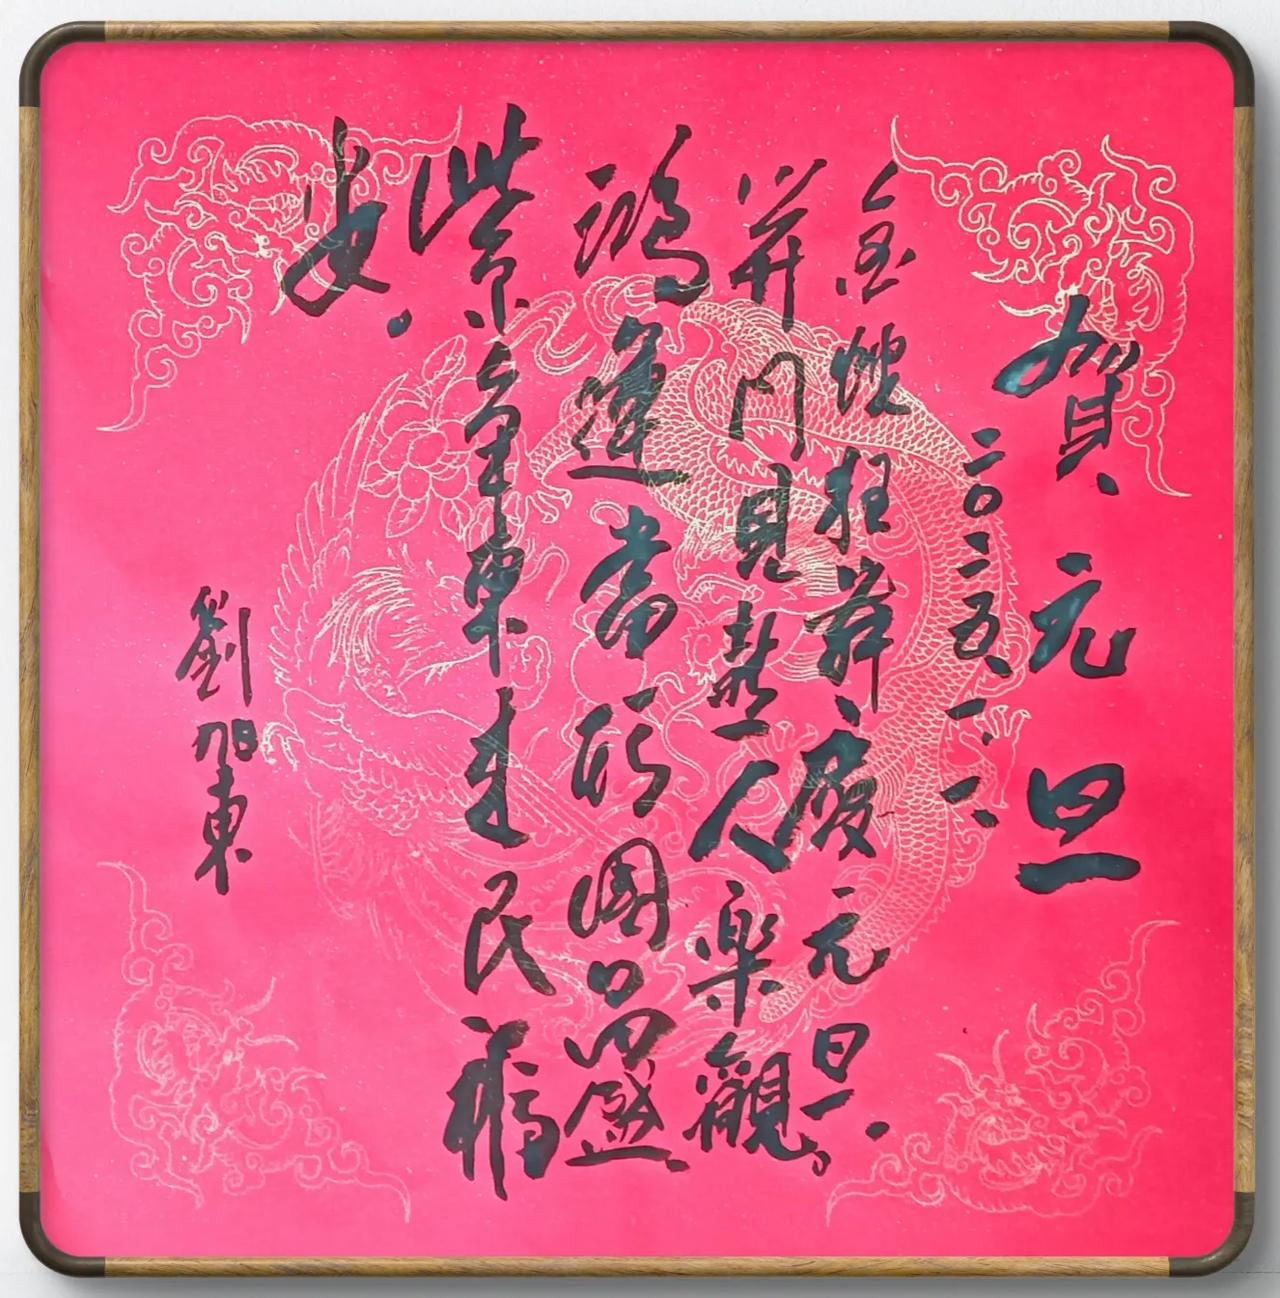 賀元旦
二〇二五、一、一、
金蛇狂舞、慶元旦、
开門見喜人樂觀。
鴻運當頭國昌盛、
紫氣東来民福
安。
劉旭東